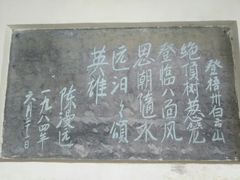 登梧州白云山
绝顶树葱茏
登临八面风
思潮随水
远汩汩颂
英雄
陈漫远
一九八四年
六月二十二日